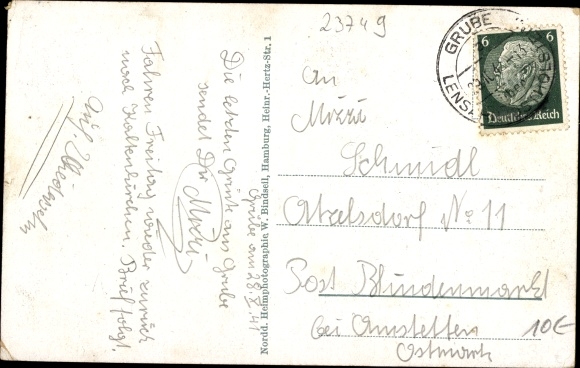 23749
GRUBE
LENSA
6 6
Deutsches Reich
Grube am 28.X.41
Die letzten Grüße aus Grube
sendet Dir
Mizzi
Fahren Freitag wieder zurück
nach Kaltenkirchen. Brief folgt.
Auf
Nordd. Heimphotographie W. Bindseil, Hamburg, Heinr.-Hertz-Str. 1
An
Mizzi
Schmidl
Atzelsdorf No 11
Post Blindenmarkt
bei Amstetten
Ostmark
10€